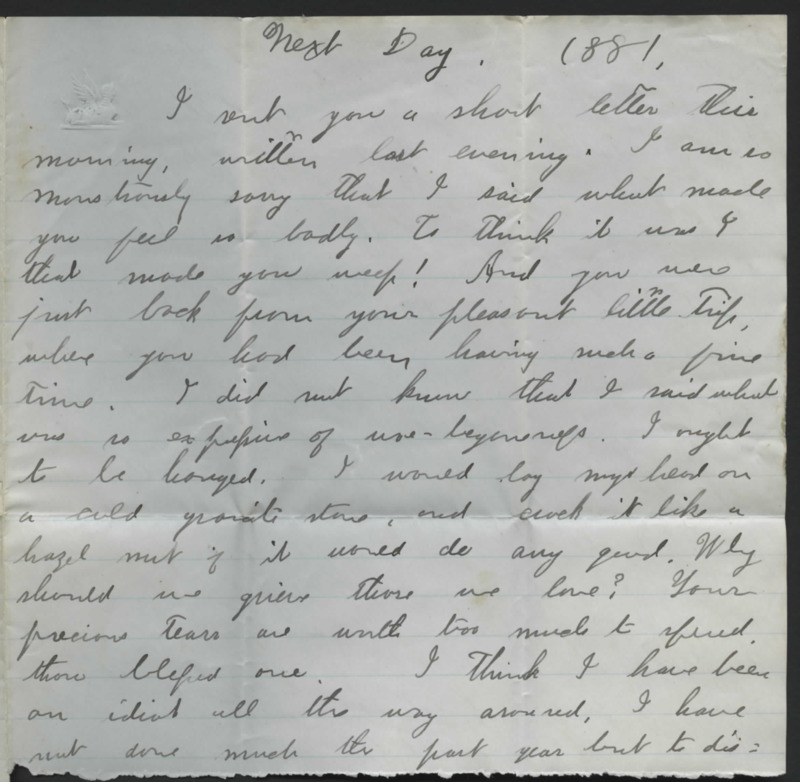 Next Day. 1881,
I sent you a short letter this
morning, written last evening. I am so
monstrously sorry that I said what made
you feel so badly. To think it was I
that made you weep! And you were
just back from your pleasant little trip,
where you had been having such a fine
time. I did not know that I said what
was so expressive of woe-begoneness. I ought
to be hanged. I would lay my head on
a cold granite stone, and crack it like a
hazel nut if it would do any good. Why
should we grieve those we love? Your
precious tears are worth too much to spend,
thou blessed one. I think I have been
an idiot all the way around, I have
not done much the past year but to dis=